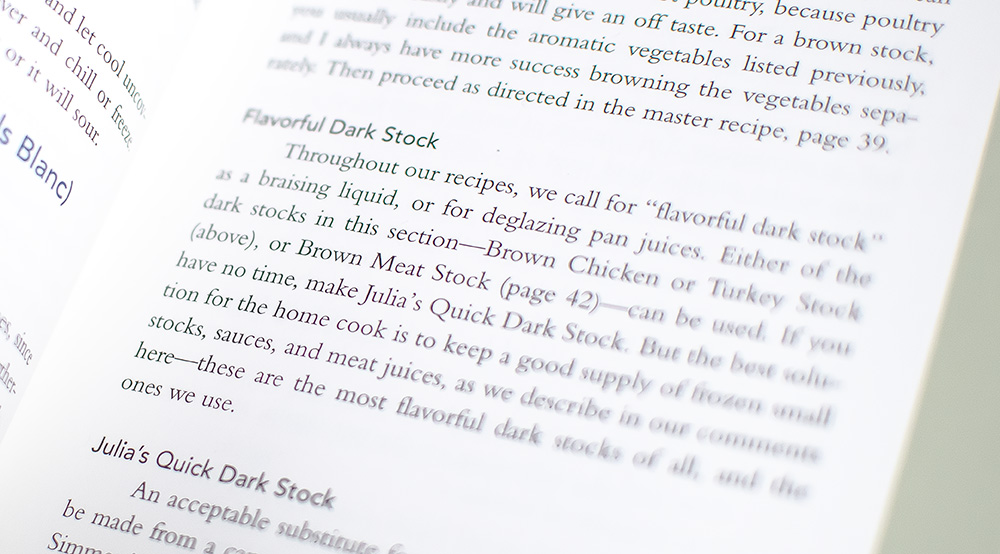 and let cool uncov-
ver and chill or freeze,
or it will sour.
s Blanc)
es, since
ther-
poultry, because poultry
and will give an off taste. For a brown stock,
you usually include the aromatic vegetables listed previously,
and I always have more success browning the vegetables sepa-
rately. Then proceed as directed in the master recipe, page 39.
Flavorful Dark Stock
Throughout our recipes, we call for “flavorful dark stock”
as a braising liquid, or for deglazing pan juices. Either of the
dark stocks in this section—Brown Chicken or Turkey Stock
(above), or Brown Meat Stock (page 42)—can be used. If you
have no time, make Julia’s Quick Dark Stock. But the best solu-
tion for the home cook is to keep a good supply of frozen small
stocks, sauces, and meat juices, as we describe in our comments
here—these are the most flavorful dark stocks of all, and the
ones we use.
Julia’s Quick Dark Stock
An acceptable substitute
be made from a